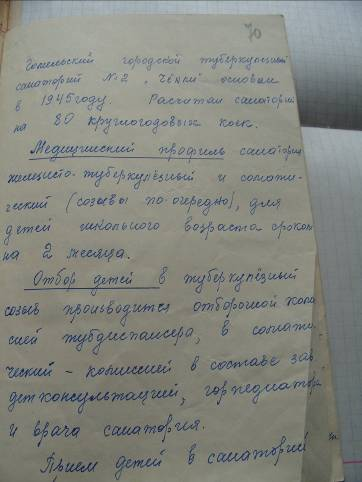 70
Гомельский городской туберкулёзный
санаторий №2 "Чёнки" основан
в 1945 году. Расчитан санаторий
на 80 круглогодовых коек.
Медицинский профиль санатория
туберкулёзный и сомати-
ческий (созывы по очередно), для
детей школьного возраста сроком
на 2 месяца.
Отбор детей в туберкулёзный
созыв производится отборочной коми
сией тубдиспансера, в сомати-
ческий - комиссией в составе зав
детконсультацией, горпедиатра
и врача санатория.
Приём детей в санаторий